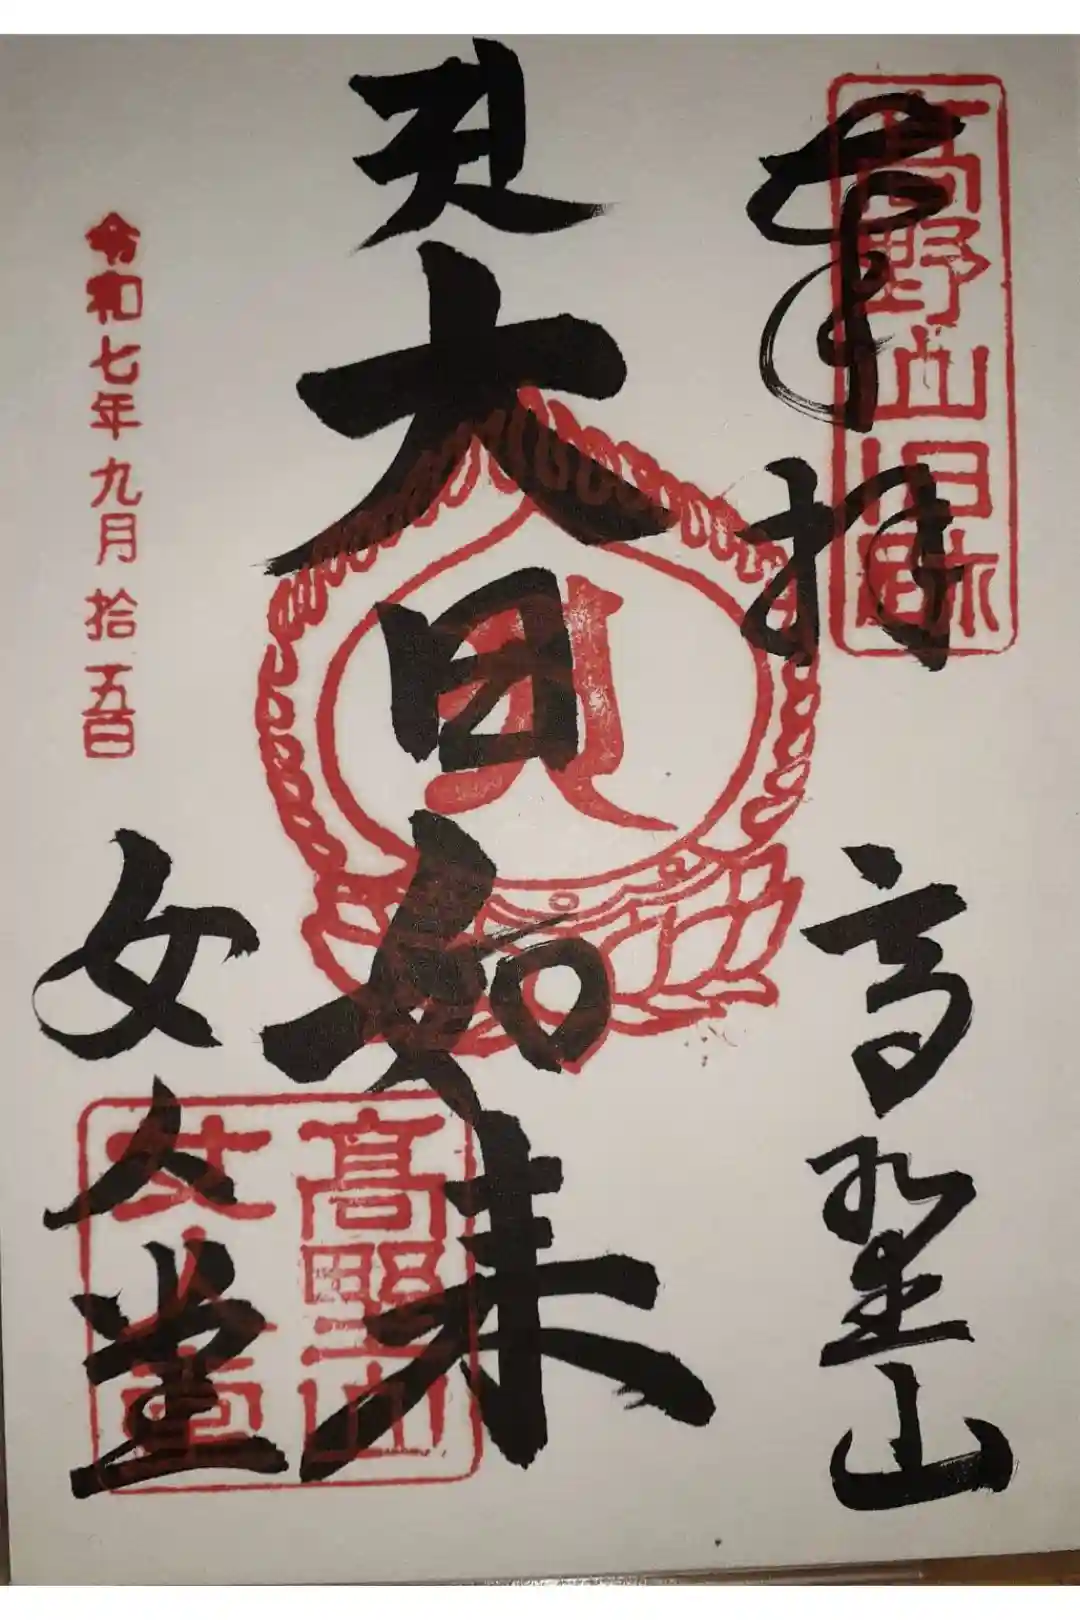 高野山旧跡
奉拝
高野山
大日如来
令和七年九月拾五日
女人堂
高野山
女人堂